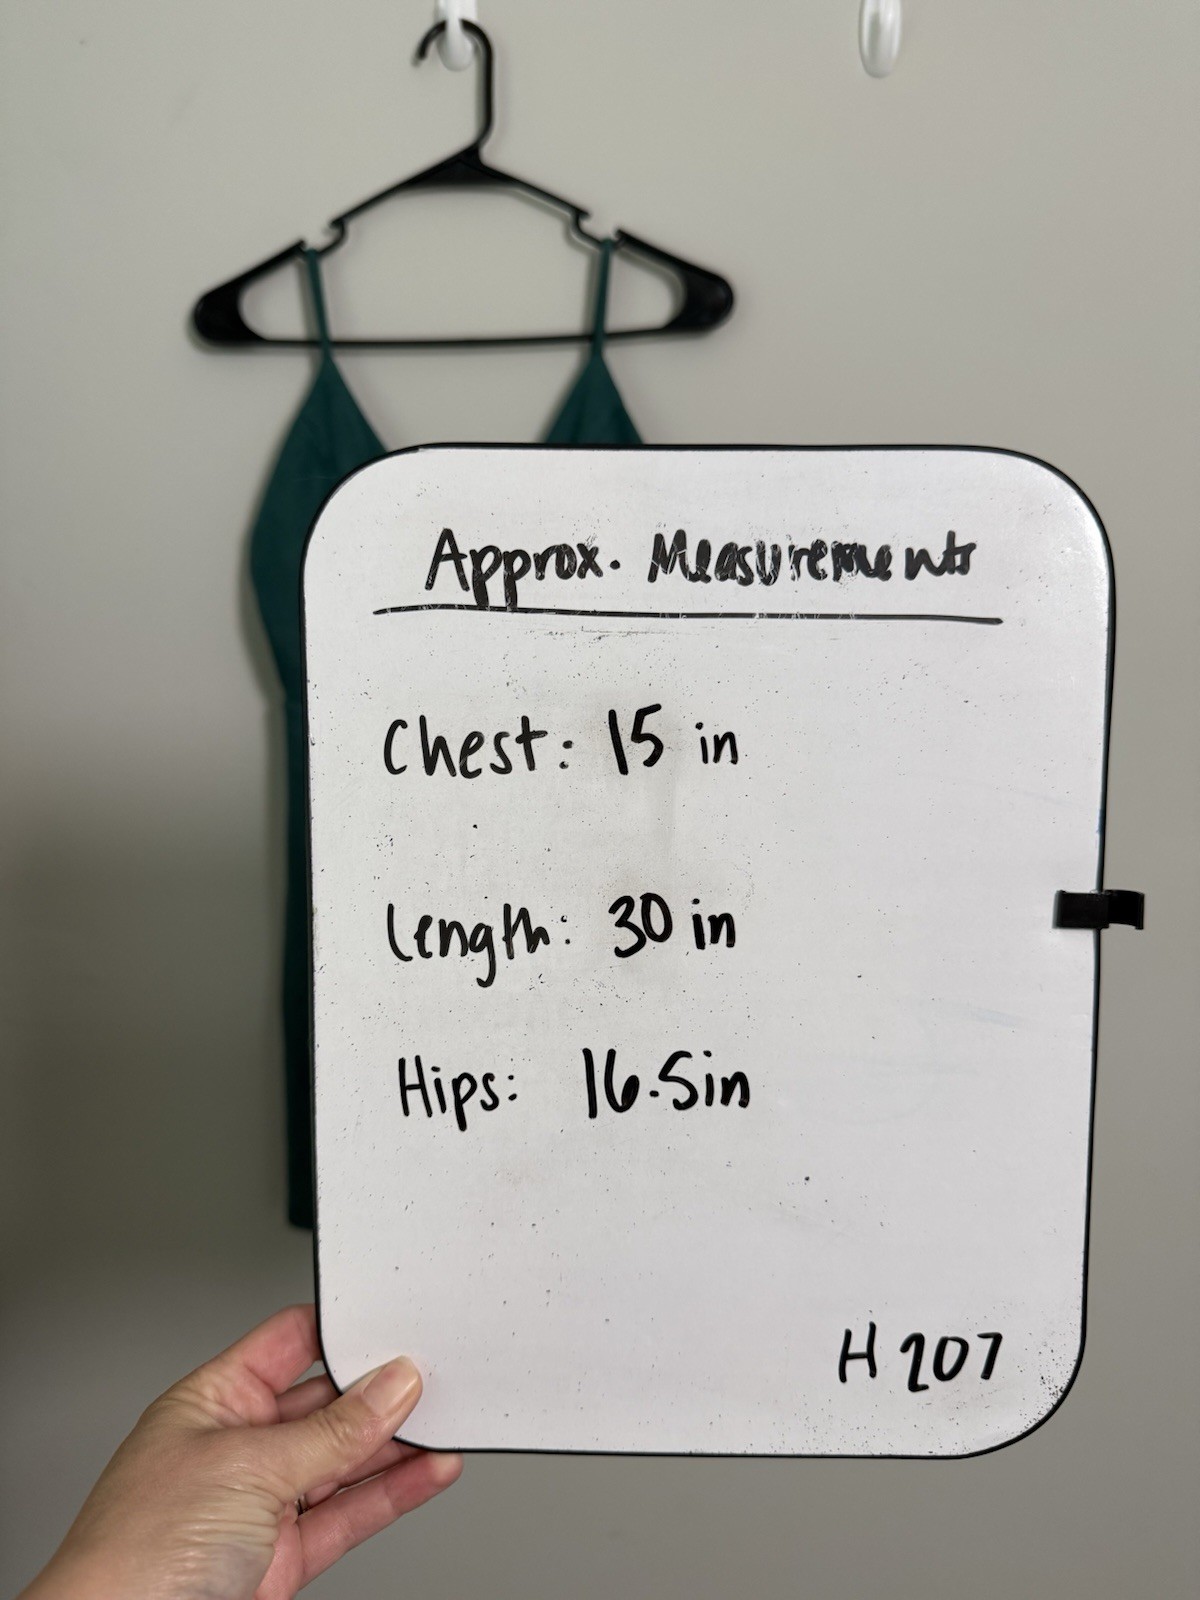 Approx. Measurements
Chest: 15 in
Length: 30 in
Hips: 16.5in
H207